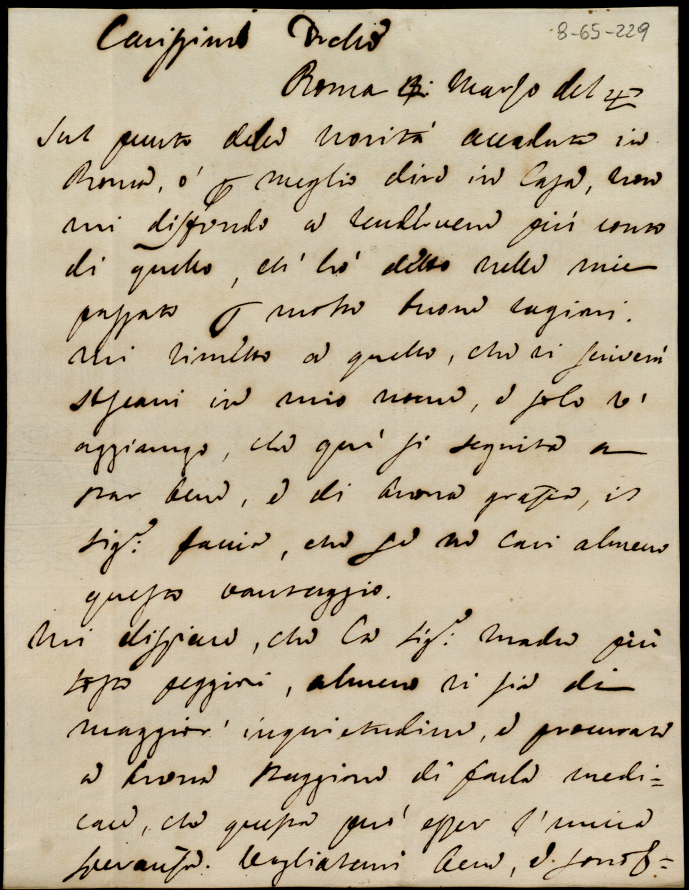 8-65-229
Carissimo Duchio
Roma Marzo del
Sul punto delle novità accadute in
Roma, ò p meglio dire in Casa, non
mi diffondo a rendervene più conto
di quello, ch'hò detto nelle mie
passate p molte buone ragioni.
Mi rimetto a quello, che vi scriverà
Stefani in mio nome, e solo v'
aggiungo, che qui si seguita a
star bene, e di buona grazia, il
Sig.e faccia, che se ne cavi almeno
questo vantaggio.
Mi dispiace, che la Sig.e Madre più
tosto peggiori, almeno vi sia di
maggior' inquietudine, e procurate
a buona staggione di farla medi=
care, che questa può esser l'unica
speranza. Vogliatemi bene, e sono